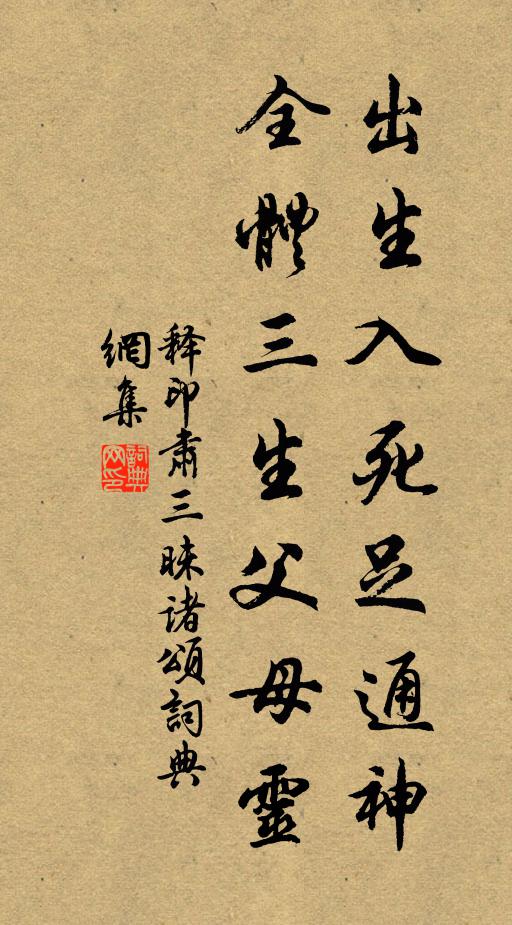 出生入死足通神
全體三生父母靈
释印肃三昧诸頌詞典
網集
詞典网印